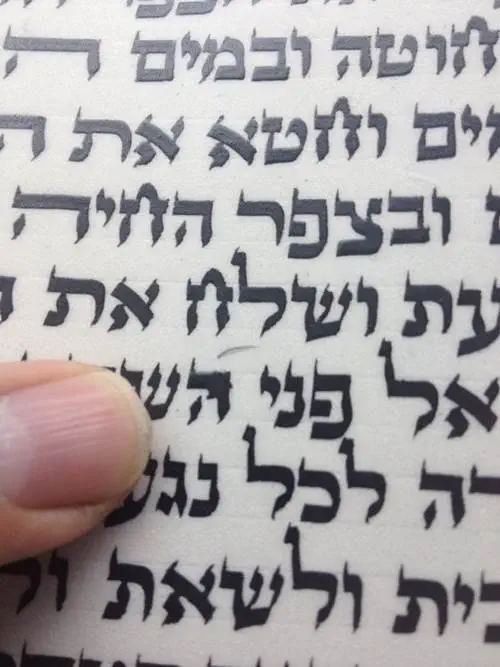 חוטה ובמים ה
ים וחטא את ה
ובצפר החיה
עת ושלח את
אל פני הש
רה לכל נגע
בית ולשאת ול